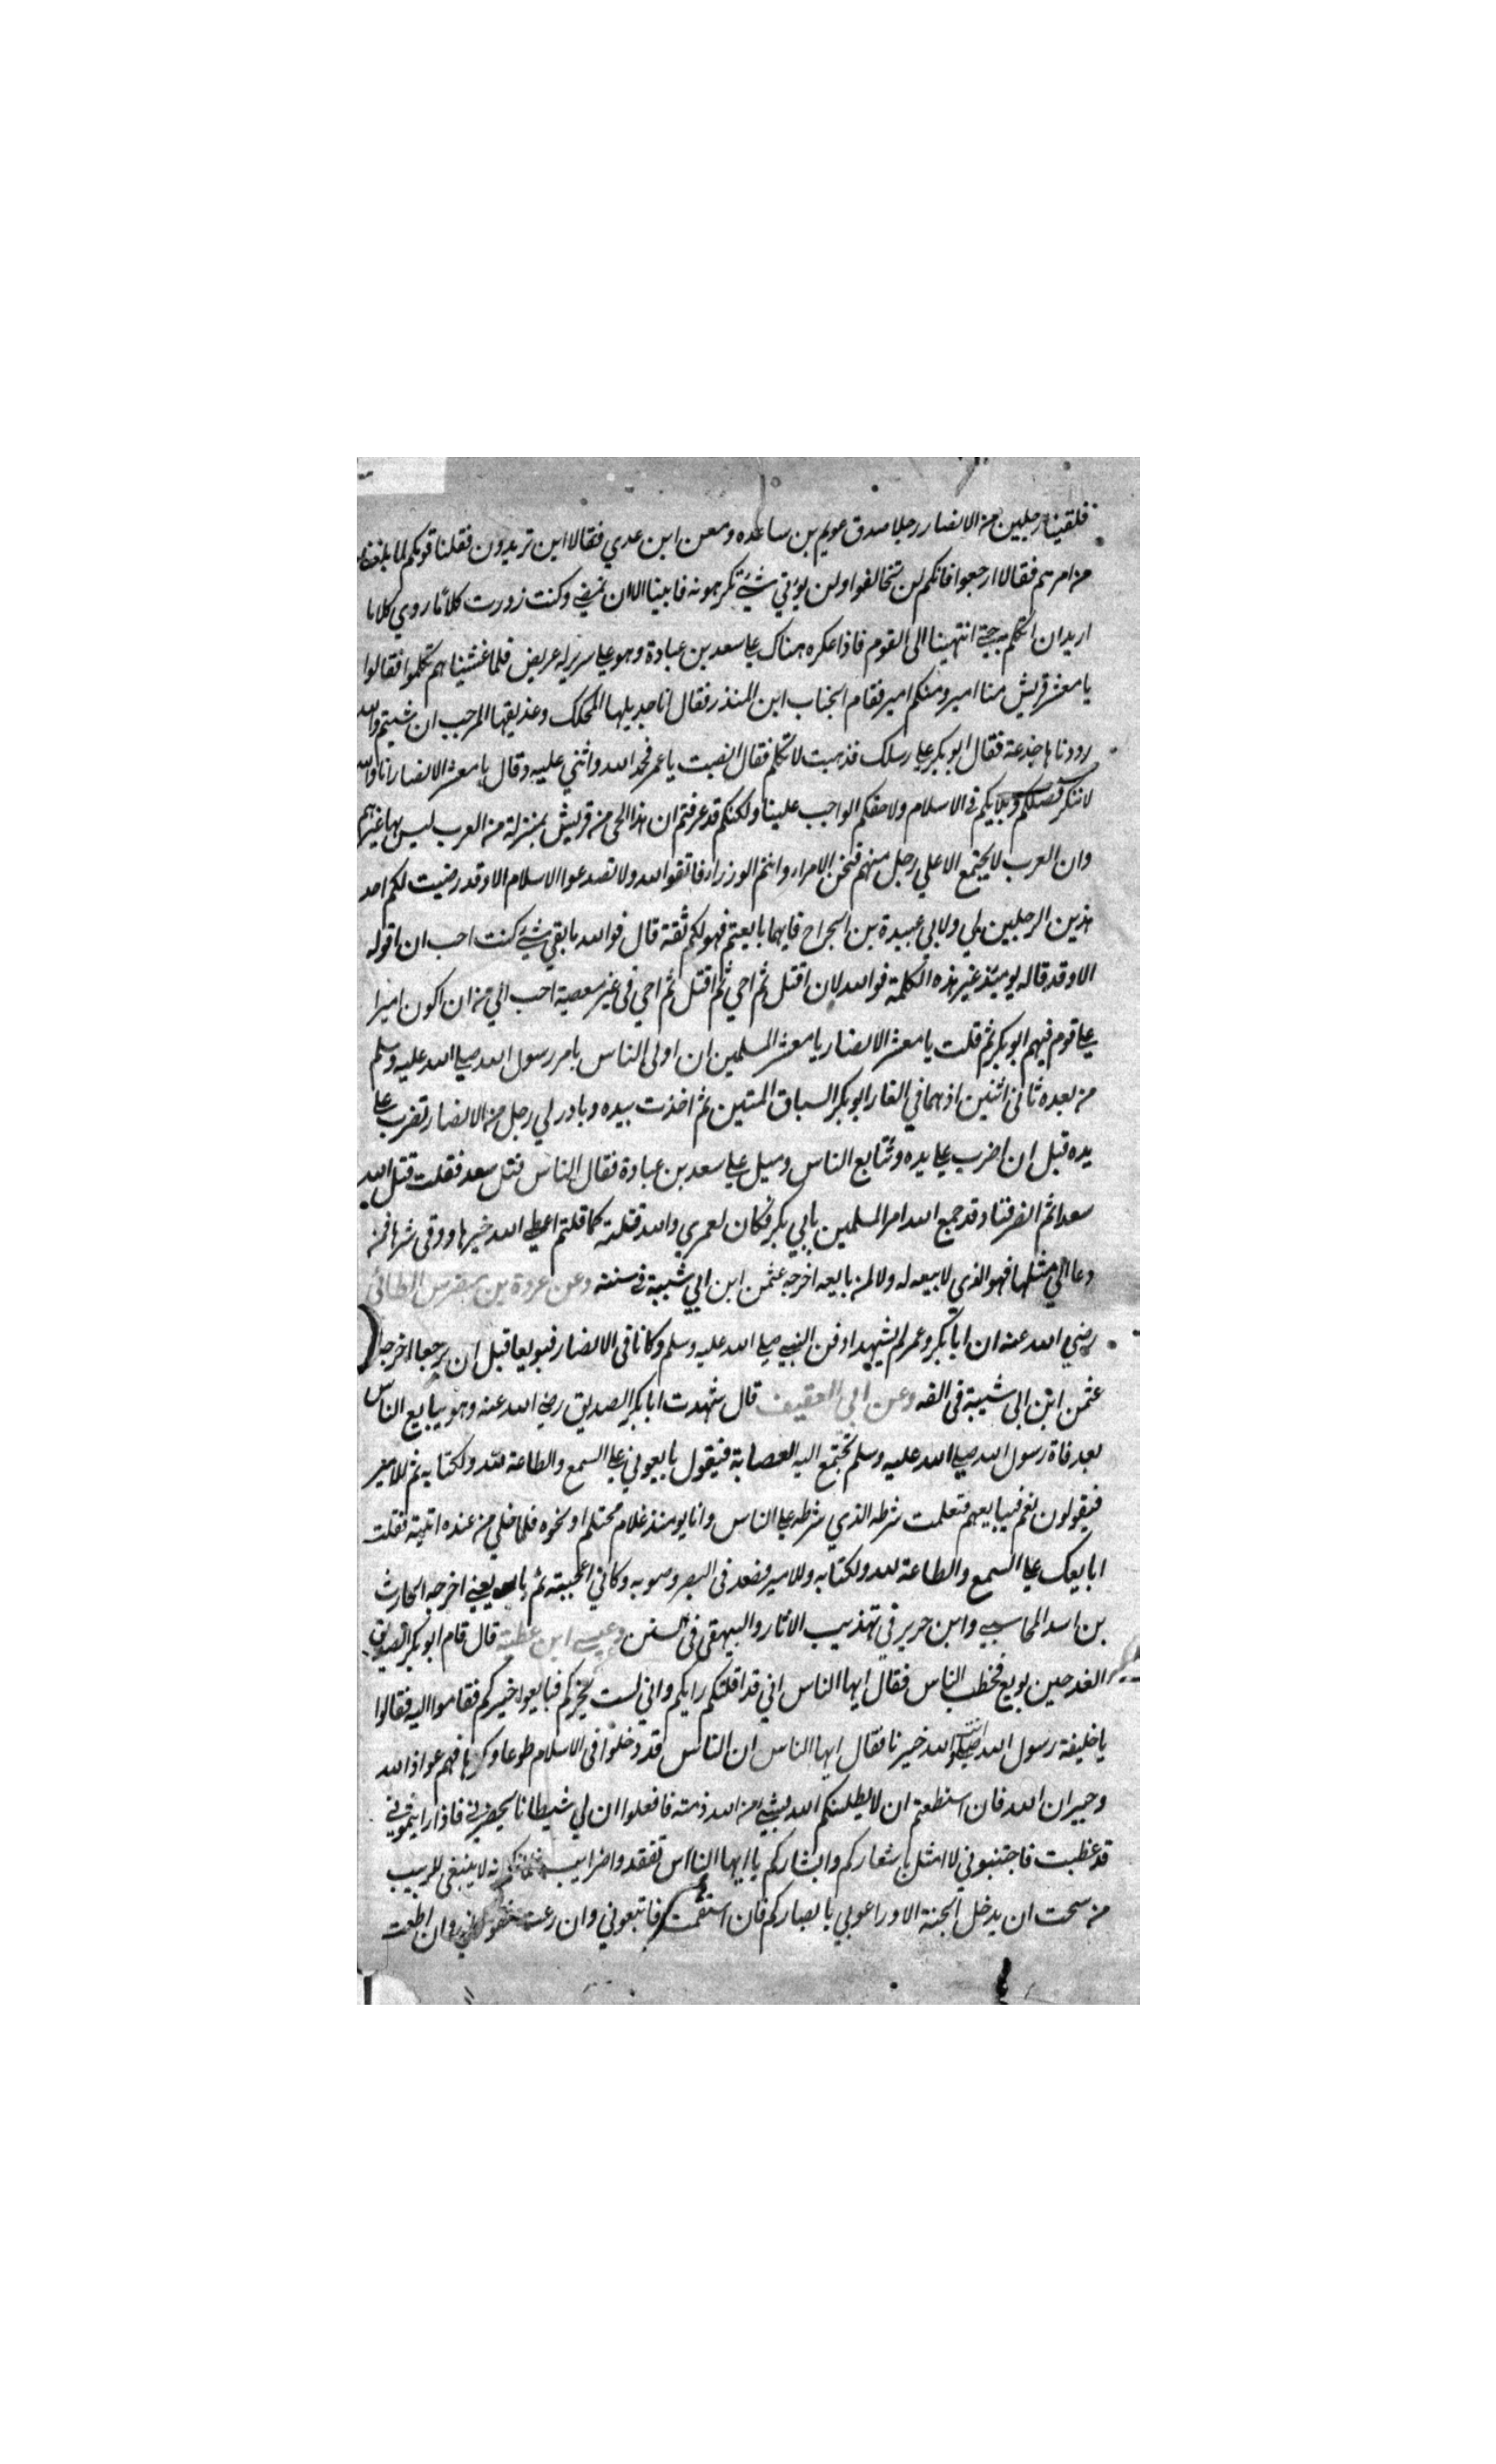 فلقينا رجلين من الانصار رجلا صدق عويم بن ساعده ومعن ابن عدي فقالا اين تريدون فقلنا قومكم لما بلغنا
من امرهم فقالا ارجعوا فانكم لن تخالفوا ولن يؤتي شيئ تكرهمونه فابينا الا ان نمضي وكنت زورت كلاما روي كلاما
اريد ان اتكلم به حتي انتهينا الى القوم فاذا عكره هناك علي سعد بن عبادة وهو علي سرير له عريض فلما غشيناهم تكلموا فقالوا
يا معشر قريش منا امير ومنكم امير فقام الحباب ابن المنذر فقال انا جديلها المحكك وعذيقها المرجب ان شيتم والله
رددناها جذعة فقال ابو بكر علي رسلك فذهبت لاتكلم فقال انصت يا عمر فحمد الله واثني عليه وقال يا معشر الانصار انا والله
لا ننكر فضلكم وبلايكم في الاسلام ولا حقكم الواجب علينا ولكنكم قد عرفتم ان هذا الحي من قريش بمنزلة من العرب ليس بها غيرهم
وان العرب لا يجتمع الا علي رجل منهم فنحن الامراء وانتم الوزراء فاتقوا الله ولا تصدعوا الاسلام الا وقد رضيت لكم احد
هذين الرجلين لي ولابي عبيدة بن الجراح فايهما بايعتم فهو لكم ثقة قال فوالله ما بقي شيئ كنت احب ان اقوله
الا وقد قاله يوميئذ غير هذه الكلمة فوالله لان اقتل ثم احي ثم اقتل ثم احي في غير معصية احب الي من ان اكون اميرا
علي قوم فيهم ابو بكر ثم قلت يا معشر الانصار يا معشر المسلمين ان اولى الناس بامر رسول الله صلي الله عليه وسلم
من بعده ثاني اثنين اذ هما في الغار ابو بكر السباق المتين ثم اخذت بيده وبادر لي رجل من الانصار تضرب علي
يده قبل ان اضرب علي يده وتتابع الناس وميل علي سعد بن عبادة فقال الناس قتل سعد فقلت قتل الله
سعدا ثم انصرفنا وقد جمع الله امر المسلمين بابي بكر فكان لعمري والله قتلته كما قلتم اعطي الله خيرها ووقى شرها فمن
دعا الي مثلها فهو الذي لا بيعه له ولا لمن بايعه اخرجه عثمن ابن ابي شيبة في سننه وعن عروة بن مضرس الطائي
رضي الله عنه ان ابا بكر وعمر لم يشهدا دفن النبي صلي الله عليه وسلم وكانا في الانصار فبويعا قبل ان يرجعا اخرجه
عثمن ابن ابي شيبة في الفه وعن ابي العقيف قال شهدت ابا بكر الصديق رضي الله عنه وهو يبايع الناس
بعد فاة رسول الله صلي الله عليه وسلم تجتمع اليه العصابة فيقول بايعوني علي السمع والطاعة لله ولكتابه ثم للامير
فيقولون نعم فيبايعهم فتعلمت شرطه الذي شرطه علي الناس وانا يومئذ غلام محتلم او نحوه فلما خلي من عنده اتيته فقلت
ابايعك علي السمع والطاعة لله ولكتابه وللامير فصعد في البصر وصوبه وكاني اعجبته ثم بايعني اخرجه الحارث
بن اسد المحاسبي وابن جرير في تهذيب الاثار والبيهقي في السنن وعيسي ابن عطية قال قام ابو بكر الصديق
الغد حين بويع فخطب الناس فقال ايها الناس اني قد اقلتكم رايكم واني لست بخيركم فبايعوا خيركم فقاموا اليه فقالوا
يا خليفة رسول الله انت والله خيرنا فقال ايها الناس ان الناس قد دخلوا في الاسلام طوعا وكرها فهم عواذ الله
وجيران الله فان استطعتم ان لا يطلبنكم الله بشيئ من الله ذمته فافعلوا ان لي شيطانا يحضرني فاذا رايتموني
قد غظبت فاجتنبوني لا امثل باشعاركم وابشاركم يا ايها الناس تفقدوا ضرايب انه لا ينبغي للربيب
من سحت ان يدخل الجنة الا وراعوني بابصاركم فان استقمت فاتبعوني وان زغت فقوموني وان اطعت